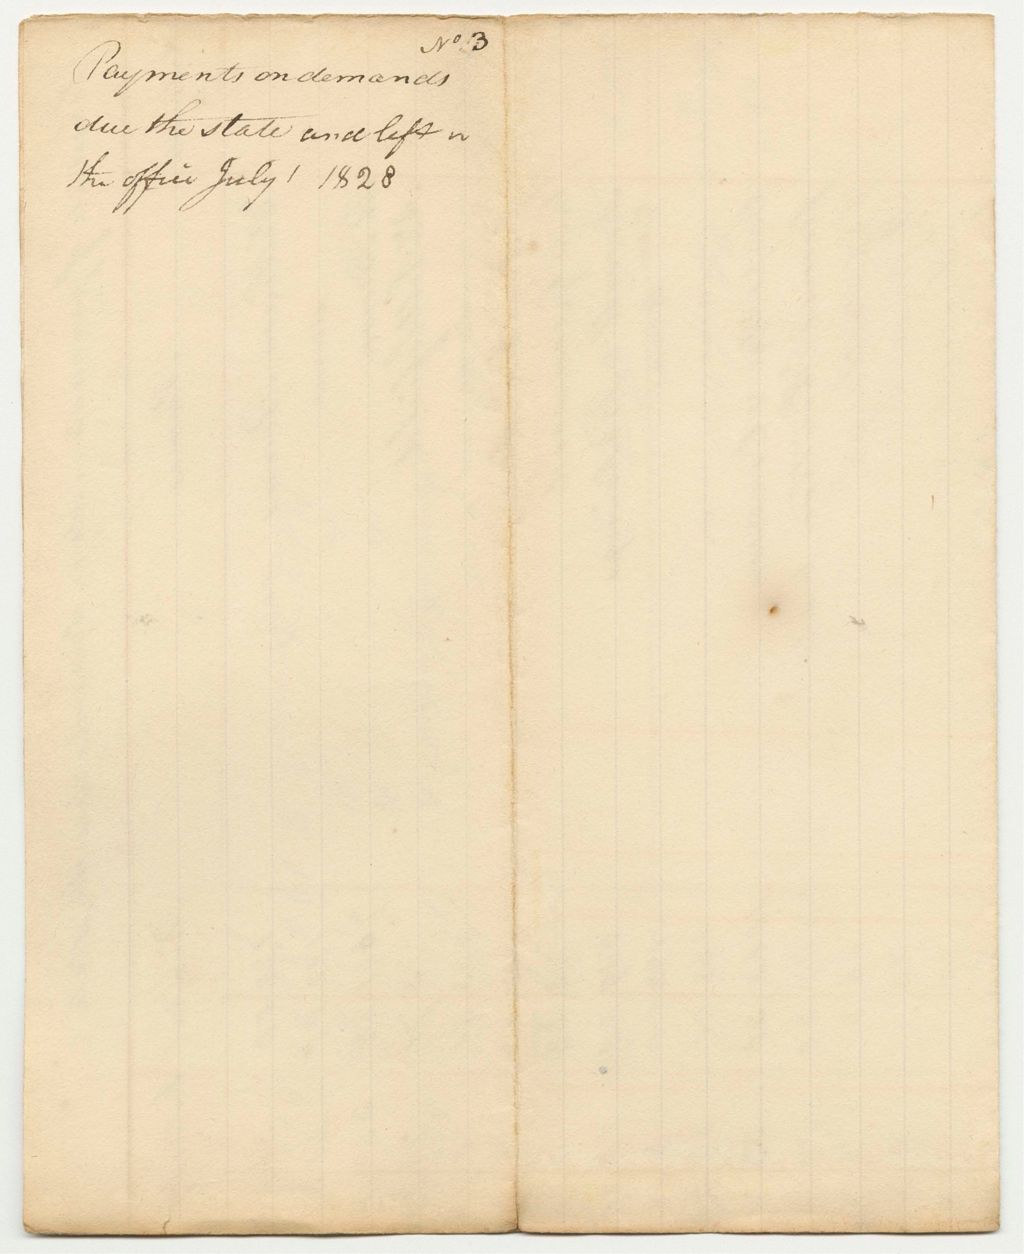 No 3
Payments on demands
due the state and left in
the office July 1 1828